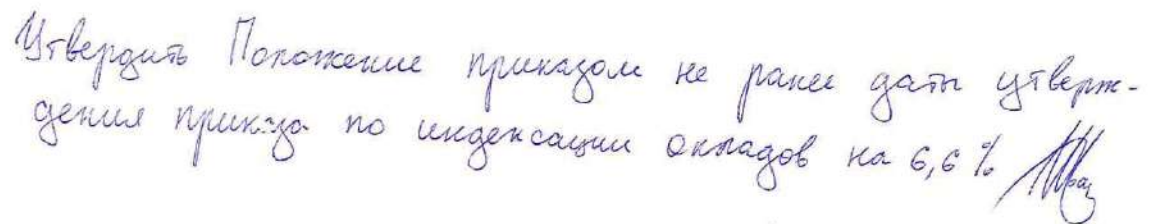 Утвердить Положение приказом не ранее даты утверж-
дения приказа по индексации окладов на 6,6 %